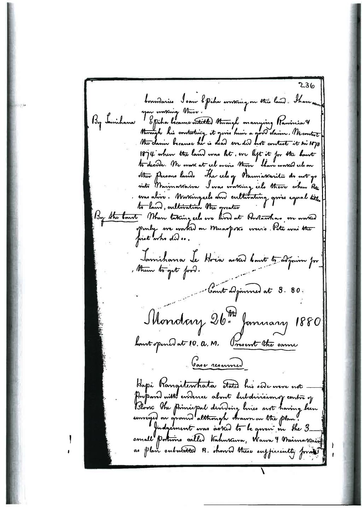 236
boundaries I saw Epiha working on this land. I have
seen working there.
By Tamihana Epiha became entitled through marrying Ramiria &
through his contesting it gives him a good claim. We
the claim because he is dead we did not contest it in 1873
1874 when the land was let, we left it for the Court
to decide. We work at eels since then have worked eels on
other Persons lands. The eels of do not go
into Waimarama. I was working eels there when Pita
was alive. Working eels and cultivating gives equal title
to land, cultivation the greater
By the Court When taking eels we lived at we worked
openly we worked on Pita was the
first who did so.
Tamihana Te Hoia asked Court to adjourn for
them to get food.
Court adjourned at 3.30.
Monday 26th January 1880
Court opened at 10. a.m. Present the same
Case resumed
Hapi Rangitewhata stated his side were not
prepared with evidence about subdivisions centre of
Block the principal dividing lines not having been
surveyed on ground although shewn on the plan.
Judgement was asked to be given in the 3
small portions called Kahurawa, & Waimarama
as plan submitted R. showed these sufficiently for a